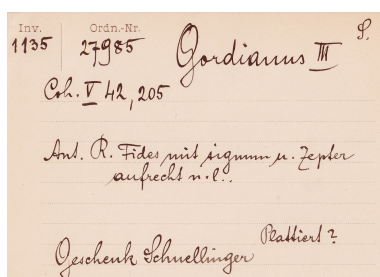 Inv. Ordn.-Nr. S.
1135 27985 Gordianus III
Coh. V 42, 205
Ant. R. Fides mit signum u. Zepter
aufrecht n. l..
Plattiert?
Geschenk Schnellinger